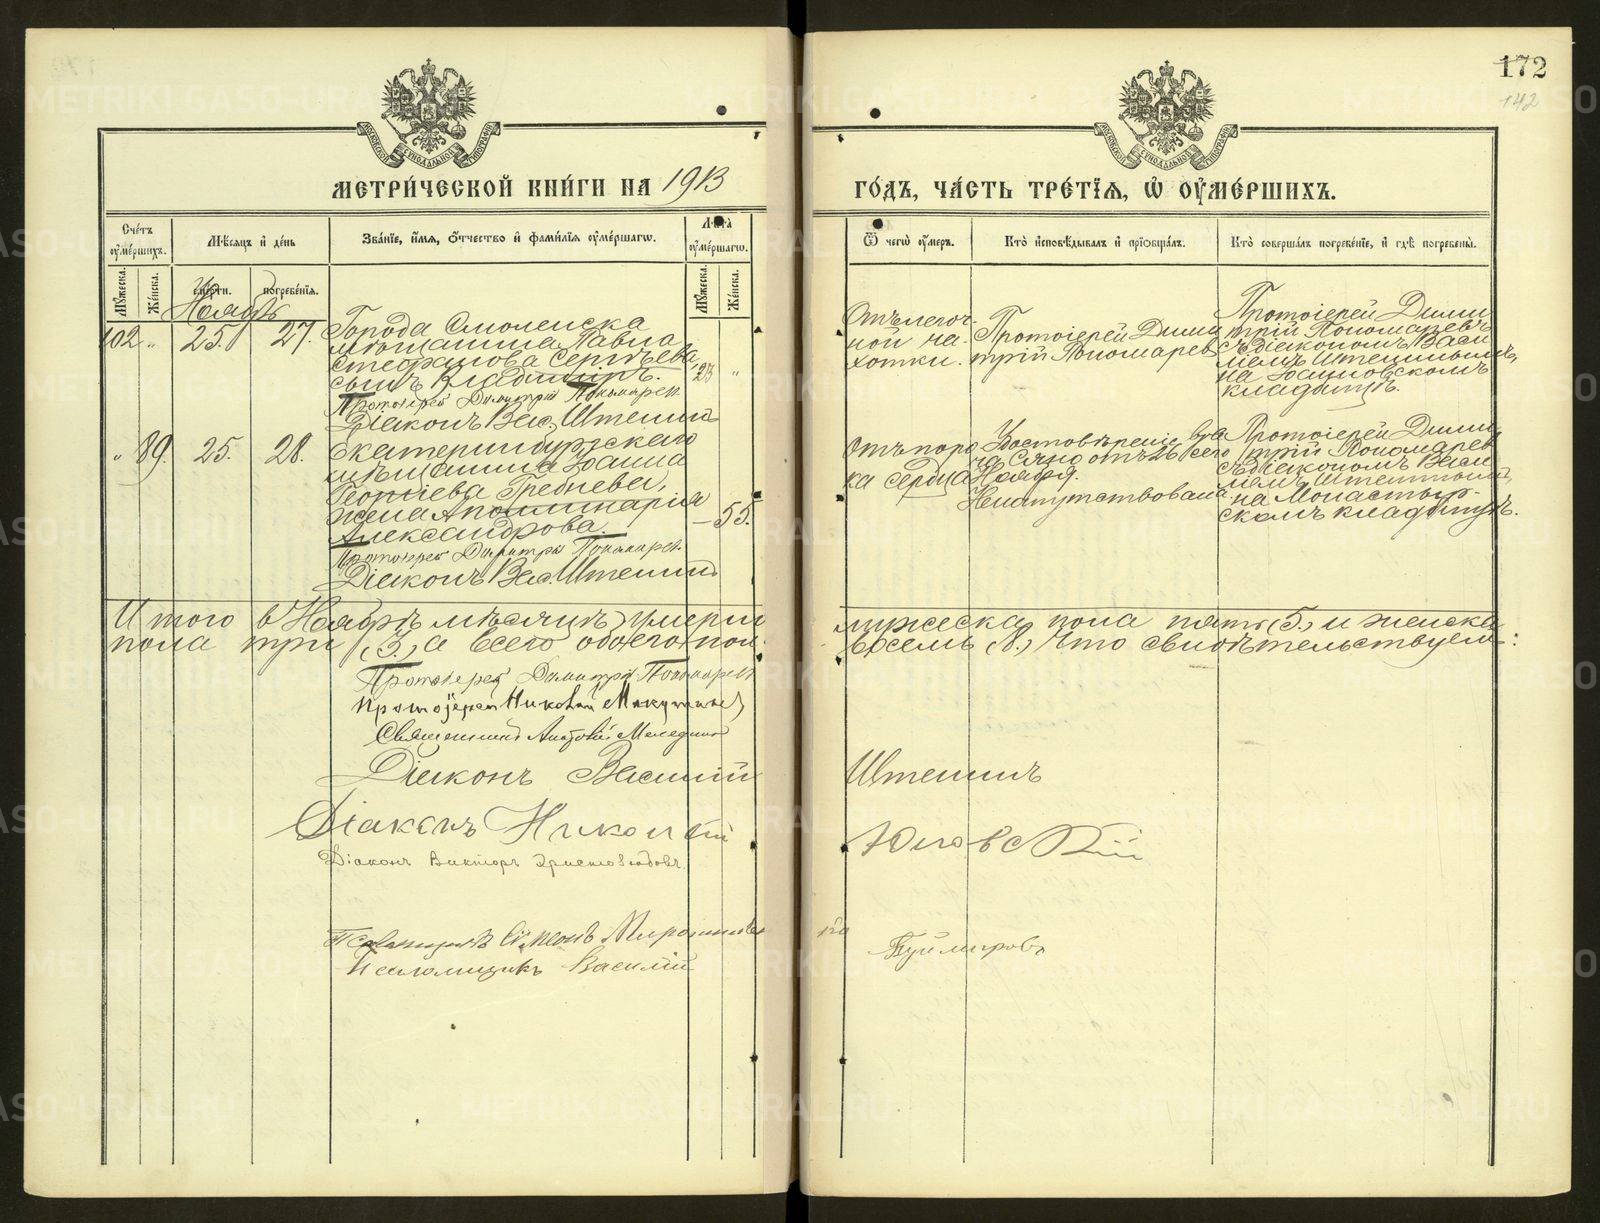 172
142
МЕТРИ́ЧЕСКОЙ КНИ́ГИ НА 1913
ГО́ДЪ, ЧА́СТЬ ТРЕ́ТІѦ, Ѡ҆ ОУ҆МЕ́РШИХЪ.
Сче́тъ оу҆ме́ршихъ.
Мѣ́сяцъ и҆ де́нь
Зва́нїе, и҆́мя, ѻ҆́тчество и҆ фами́лїя оу҆ме́ршагѡ.
Лѣ́та оу҆ме́ршагѡ.
Ѿ чегѡ̀ оу҆́меръ.
Кто̀ и҆сповѣ́дывалъ и҆ прїѡбща́лъ.
Кто̀ соверша́лъ погребе́нїе, и҆ гдѣ̀ погребены̀.
Мꙋ́жеска.
Же́нска.
сме́рти.
погребе́нїя.
Мꙋ́жеска.
Же́нска.
Ноябрь
102 „ 25. 27.
Города Смоленска
мѣщанина Павла
Стефанова Сергѣева,
сынъ Владимиръ.
23 „
Протоіерей Димитрій Пономарев
Діаконъ Вас. Штенинъ
Отъ легоч-
ной ча-
хотки.
Протоіерей Дими
трій Пономарев
Протоіерей Дими
трій Пономаревъ
съ діакономъ Васи
ліемъ Штенинымъ,
на Іоанновскомъ
кладбищѣ.
„ 89. 25. 28.
Екатеринбургскаго
мѣщанина Іоанна
Георгіева Гребнева,
жена Аполлинарія
Александрова.
— 55.
Протоіерей Димитрій Пономарев
Діаконъ Вас. Штенинъ
Отъ поро
ка сердца
Удостовѣреніе вра
ча отъ 26 сего
Ноября.
Ненапутствована
Протоіерей Дими
трій Пономарев
съ діакономъ Васи
ліемъ Штенинымъ,
на Монастыр-
скомъ кладбищѣ.
Итого в Ноябрѣ мѣсяцѣ умерли мужеска пола пять (5.) и женска
пола три (3.) а всего обоего пола восемь (8.) Что свидѣтельствуем:
Протоіерей Димитрій Пономарев
Протоіерей Николай
Священникъ
Діаконъ Василій Штенинъ
Діаконъ Николай Юговскій
Діаконъ Викторъ Христолюбовъ.
Псаломщикъ Симеонъ
Псаломщикъ Василій
METRIKI.GASO-URAL.RU